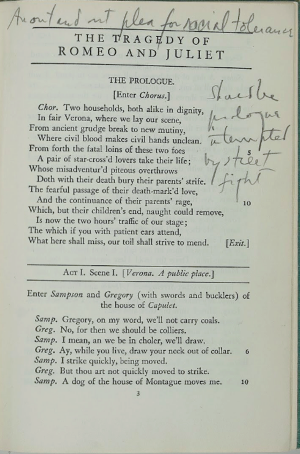 An out and out plea for social tolerance
THE TRAGEDY OF
ROMEO AND JULIET
THE PROLOGUE.
[Enter Chorus.]
Chor. Two households, both alike in dignity,
In fair Verona, where we lay our scene,
From ancient grudge break to new mutiny,
Where civil blood makes civil hands unclean.
From forth the fatal loins of these two foes 5
A pair of star-cross'd lovers take their life;
Whose misadventur'd piteous overthrows
Doth with their death bury their parents' strife.
The fearful passage of their death-mark'd love,
And the continuance of their parents' rage, 10
Which, but their children's end, naught could remove,
Is now the two hours' traffic of our stage;
The which if you with patient ears attend,
What here shall miss, our toil shall strive to mend. [Exit.]
Should be
prologue
interrupted
by street
fight
ACT I. Scene I. [Verona. A public place.]
Enter Sampson and Gregory (with swords and bucklers) of
the house of Capulet.
Samp. Gregory, on my word, we'll not carry coals.
Greg. No, for then we should be colliers.
Samp. I mean, an we be in choler, we'll draw.
Greg. Ay, while you live, draw your neck out of collar. 6
Samp. I strike quickly, being moved.
Greg. But thou art not quickly moved to strike.
Samp. A dog of the house of Montague moves me. 10
3